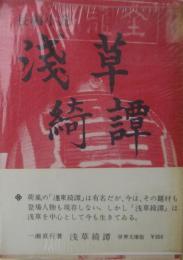 長編小説
浅草
綺譚
荷風の「濹東綺譚」は有名だが、今は、その題材も
登場人物も現存しない。しかし「浅草綺譚」は
浅草を中心として今も生きてゐる。
一瀬直行著 浅草綺譚 世界文庫版 ¥350